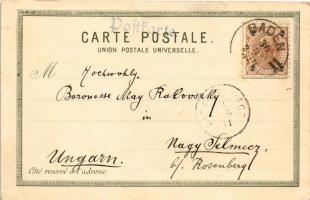 Postkarte
CARTE POSTALE.
UNION POSTALE UNIVERSELLE.
BADEN
M Hochwohlg.
Baronesse May Rakovszky
in
Ungarn. Nagy Selmecz
b/ Rosenberg
Côté réservé à l'adresse.